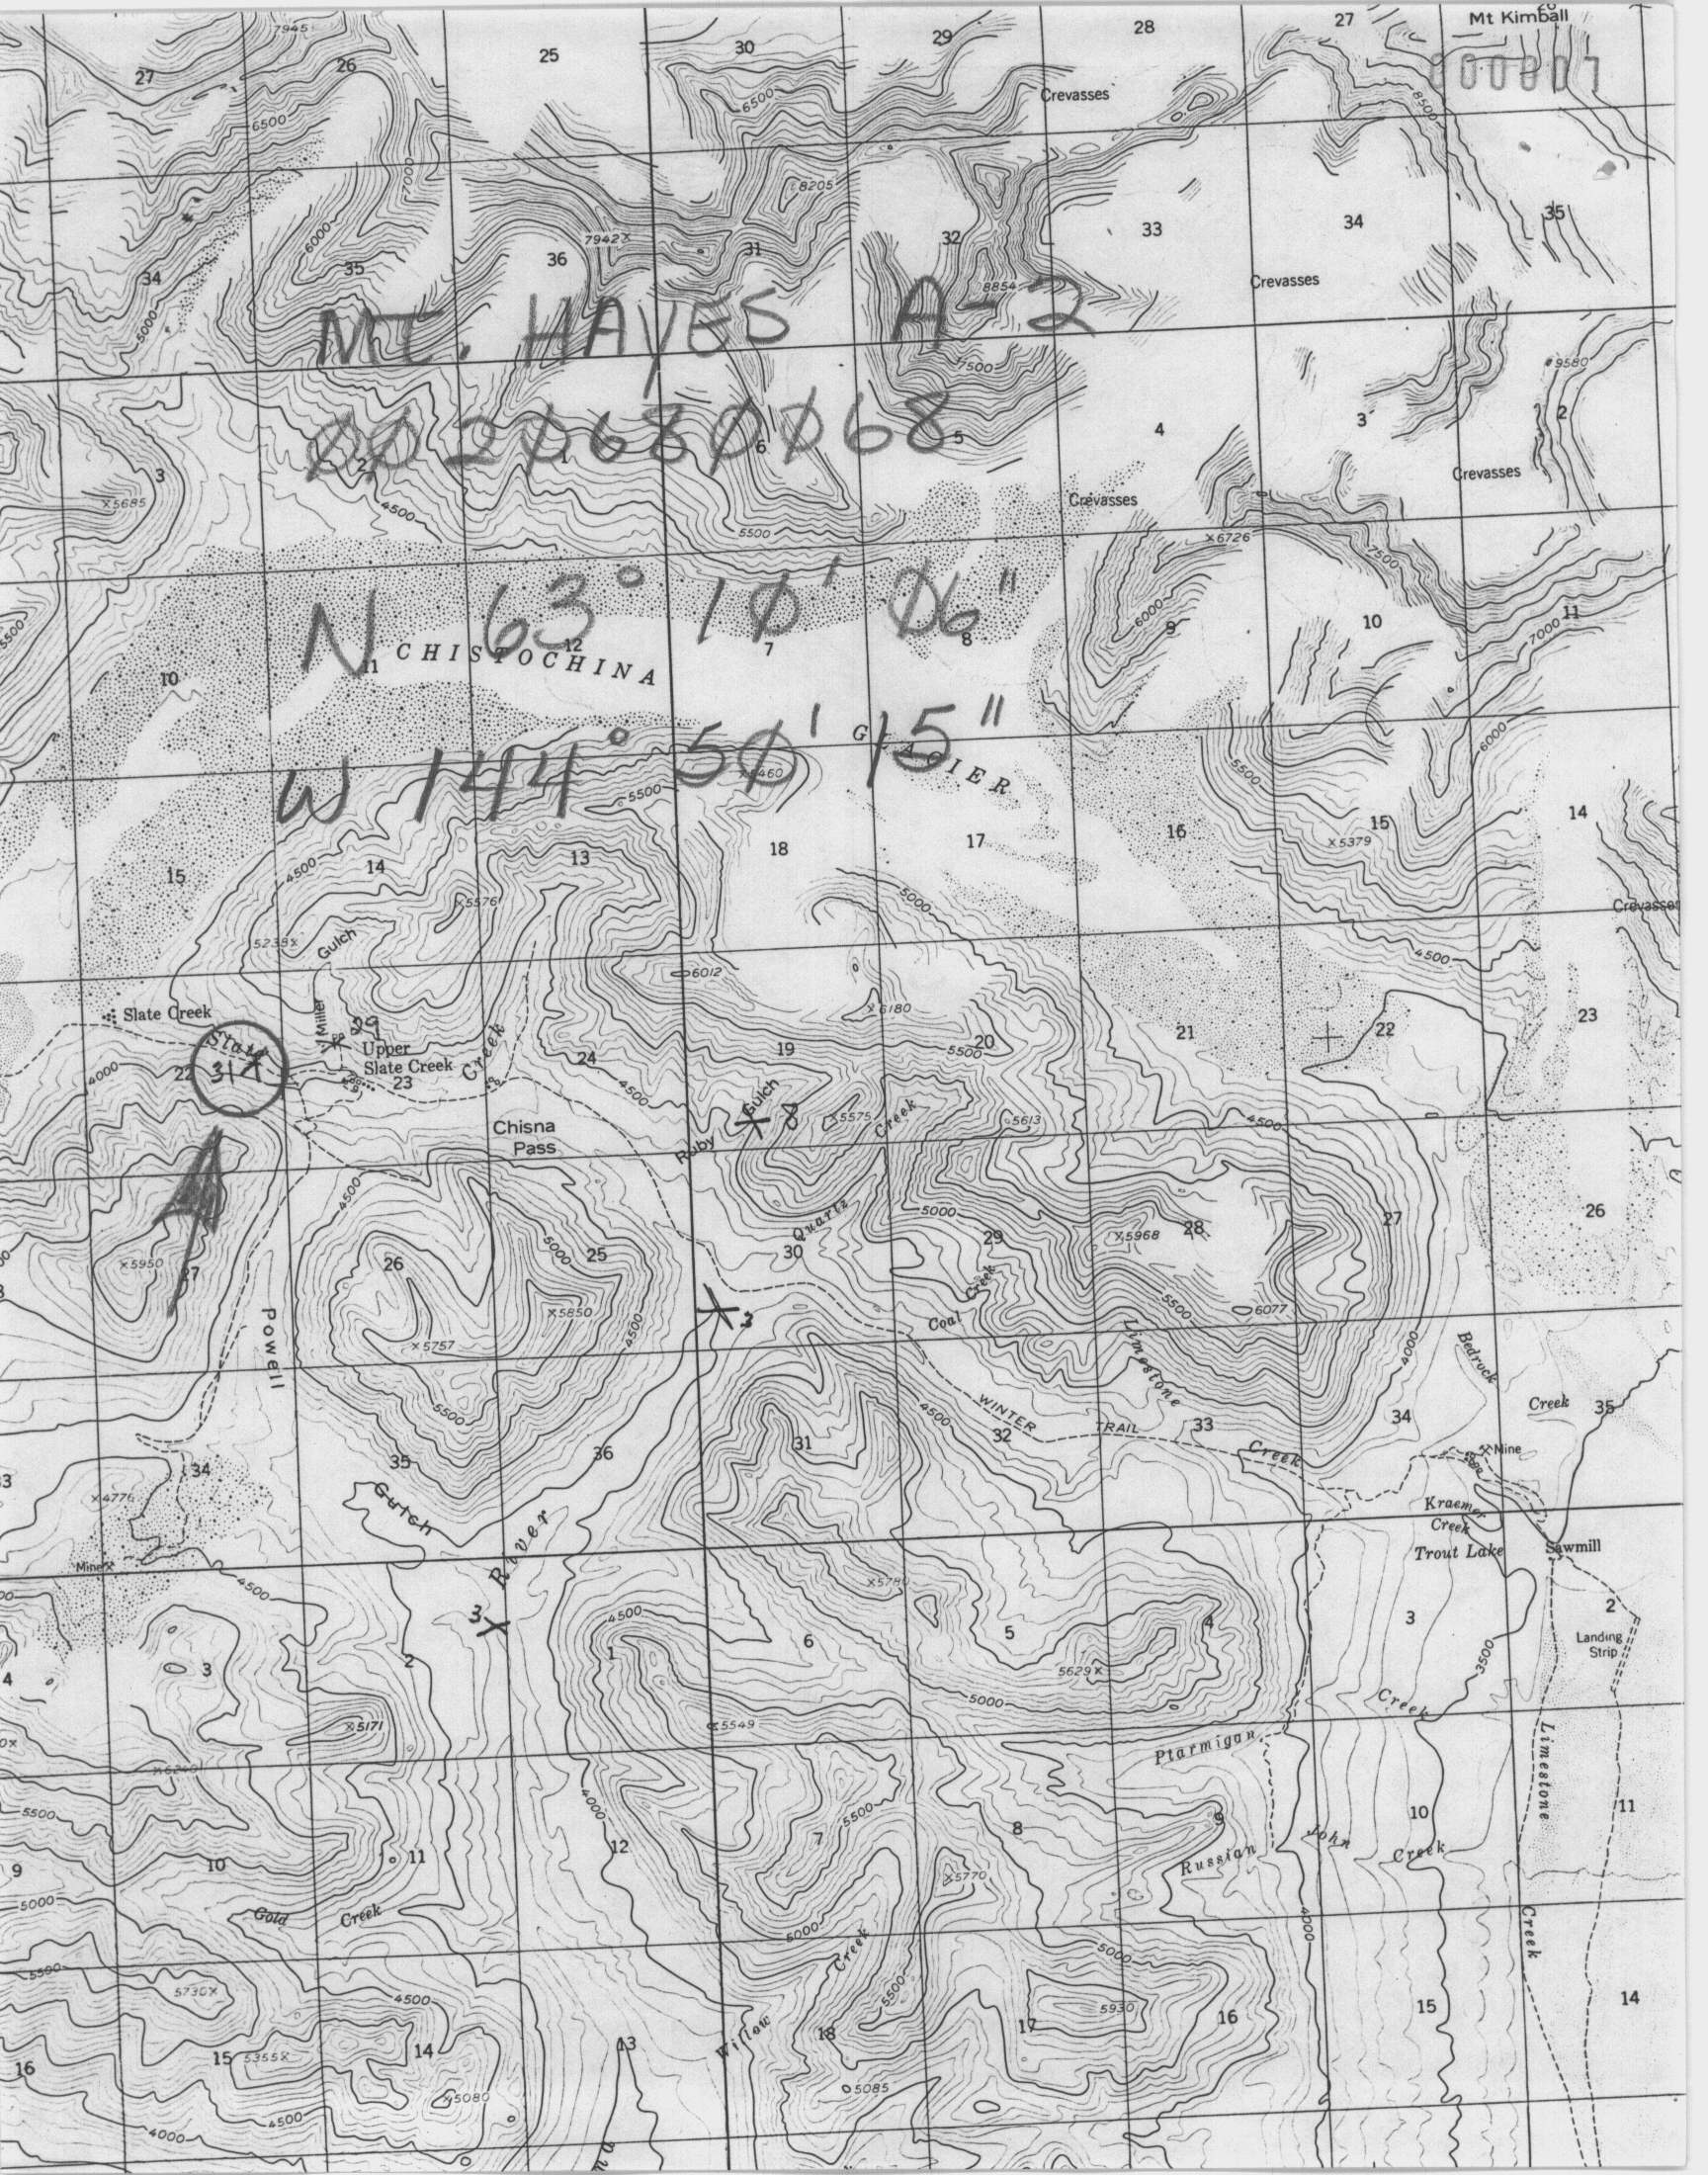 Mt Kimball
000807
28
27
29
30
25
26
27
7945
6500
6500
Crevasses
8500
7000
8205
7942
6000
36
31
32
33
34
35
35
34
5000
8854
Crevasses
MT. HAYES A-2
7500
9580
ØØ2Ø68ØØ68
3
2
1
6
5
4
3
2
5685
4500
5500
Crevasses
Crevasses
6726
7500
5500
N 63° 1Ø' Ø6"
6000
7000
10
11
12
7
8
9
10
11
CHISTOCHINA
GLACIER
W 144° 5Ø' 15"
5460
5500
5500
6000
15
14
13
18
17
16
15
14
4500
5379
5000
5576
5235
Gulch
Crevasses
4500
6012
6180
Slate Creek
Miller
29
Upper
Slate Creek
Creek
Slate
31
22
23
24
19
20
21
22
23
4000
5500
4500
Gulch
8
Ruby
5575
Creek
5613
4500
Chisna
Pass
4500
Quartz
5000
5968
5950
27
26
25
30
29
28
27
26
5000
5850
5757
4500
3
Coal
Creek
5500
6077
4000
Powell
Limestone
Bedrock
Creek
5500
WINTER
TRAIL
4500
34
35
36
31
32
33
34
35
Creek
Mine
4776
Gulch
River
Kraemer
Creek
Trout Lake
Sawmill
Mine
4500
3
4500
4
3
2
1
6
5
4
3
2
Landing
Strip
5629
3500
5000
5171
5549
Creek
Ptarmigan
Limestone
4000
5500
5500
9
10
11
12
7
8
9
10
11
John
Creek
Russian
5770
5000
Gold
Creek
5000
Creek
4000
5000
Creek
5500
5500
4500
5930
16
15
14
13
18
17
16
15
14
Willow
5355
5080
5085
4500
4000